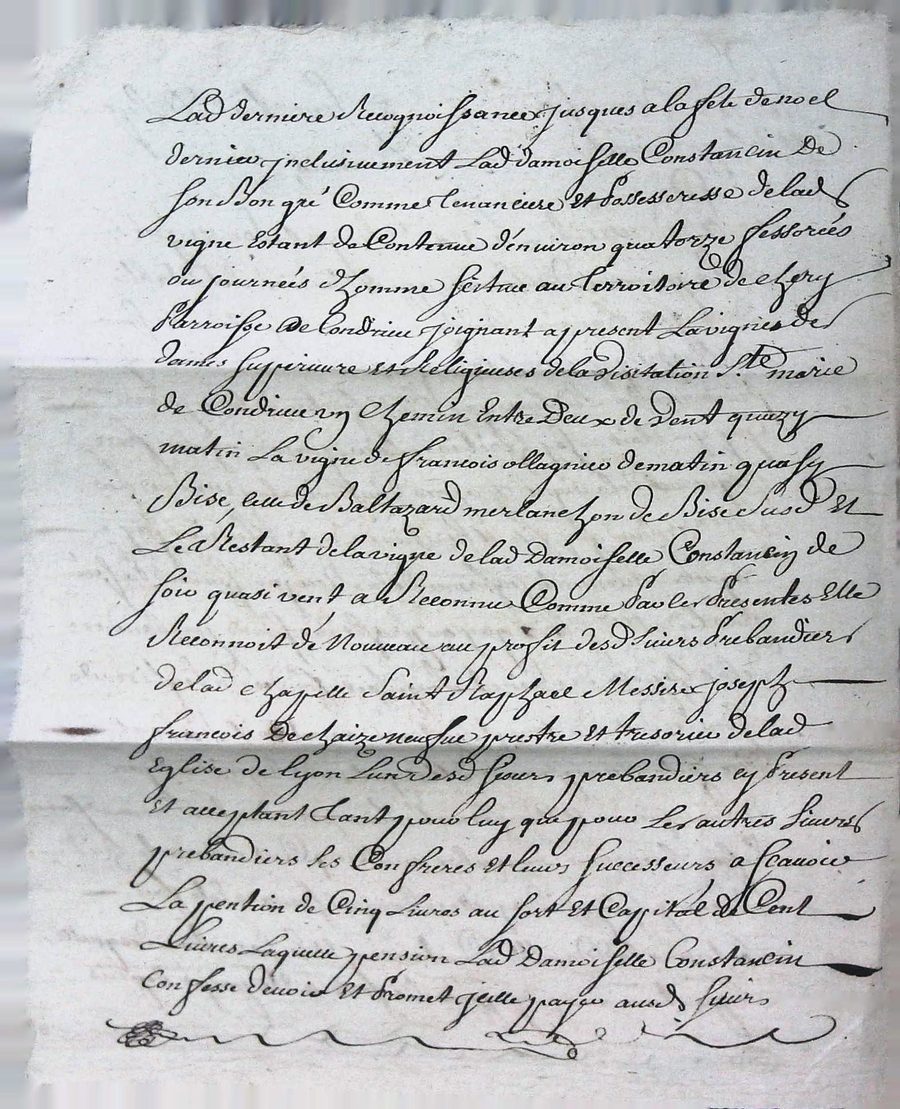 Lad dernire Recognoissance jusques a la fete de noel
dernier jnclusivement Lad damoiselle Constancin De
son Bon gré Comme Tenanciere Et Possesseresse de lad
vigne Estant de Contenue d'environ quatorze fessorées
ou journées d'homme scitue au Territoire de chery
Parroisse De Condrieu joignant a present La vigne des
dames Supirieure et Religieuses de la Visitation S.te marie
de Condrieu un chemin Entre Deux de Vent quazy
matin La vigne de francois ollagnier de matin quasy
Bise, celle de Baltazard merlanchon de Bise Susd Et
Le Restant de la vigne de lad Damoiselle Constancin de
soir quasi vent a Reconnu Comme Par les Presentes Elle
Reconnoit de Nouveau au profit desd Sieurs Prebandiers
de lad chapelle Saint Raphael Messire joseph
francois De chaizeneufue prestre Et tresorier de lad
Eglise de lyon Lun desd Sieurs prebandiers cy Present
Et acceptant Tant pour luy que pour Les autres Sieurs
prebandiers ses Confreres Et leurs Successeurs a scavoir
La pention de Cinq Livres au sort Et Capital de Cent
Livres Laquelle pension Lad Damoiselle Constancin
Confesse devoir Et Promet jcelle payer ausd Sieurs